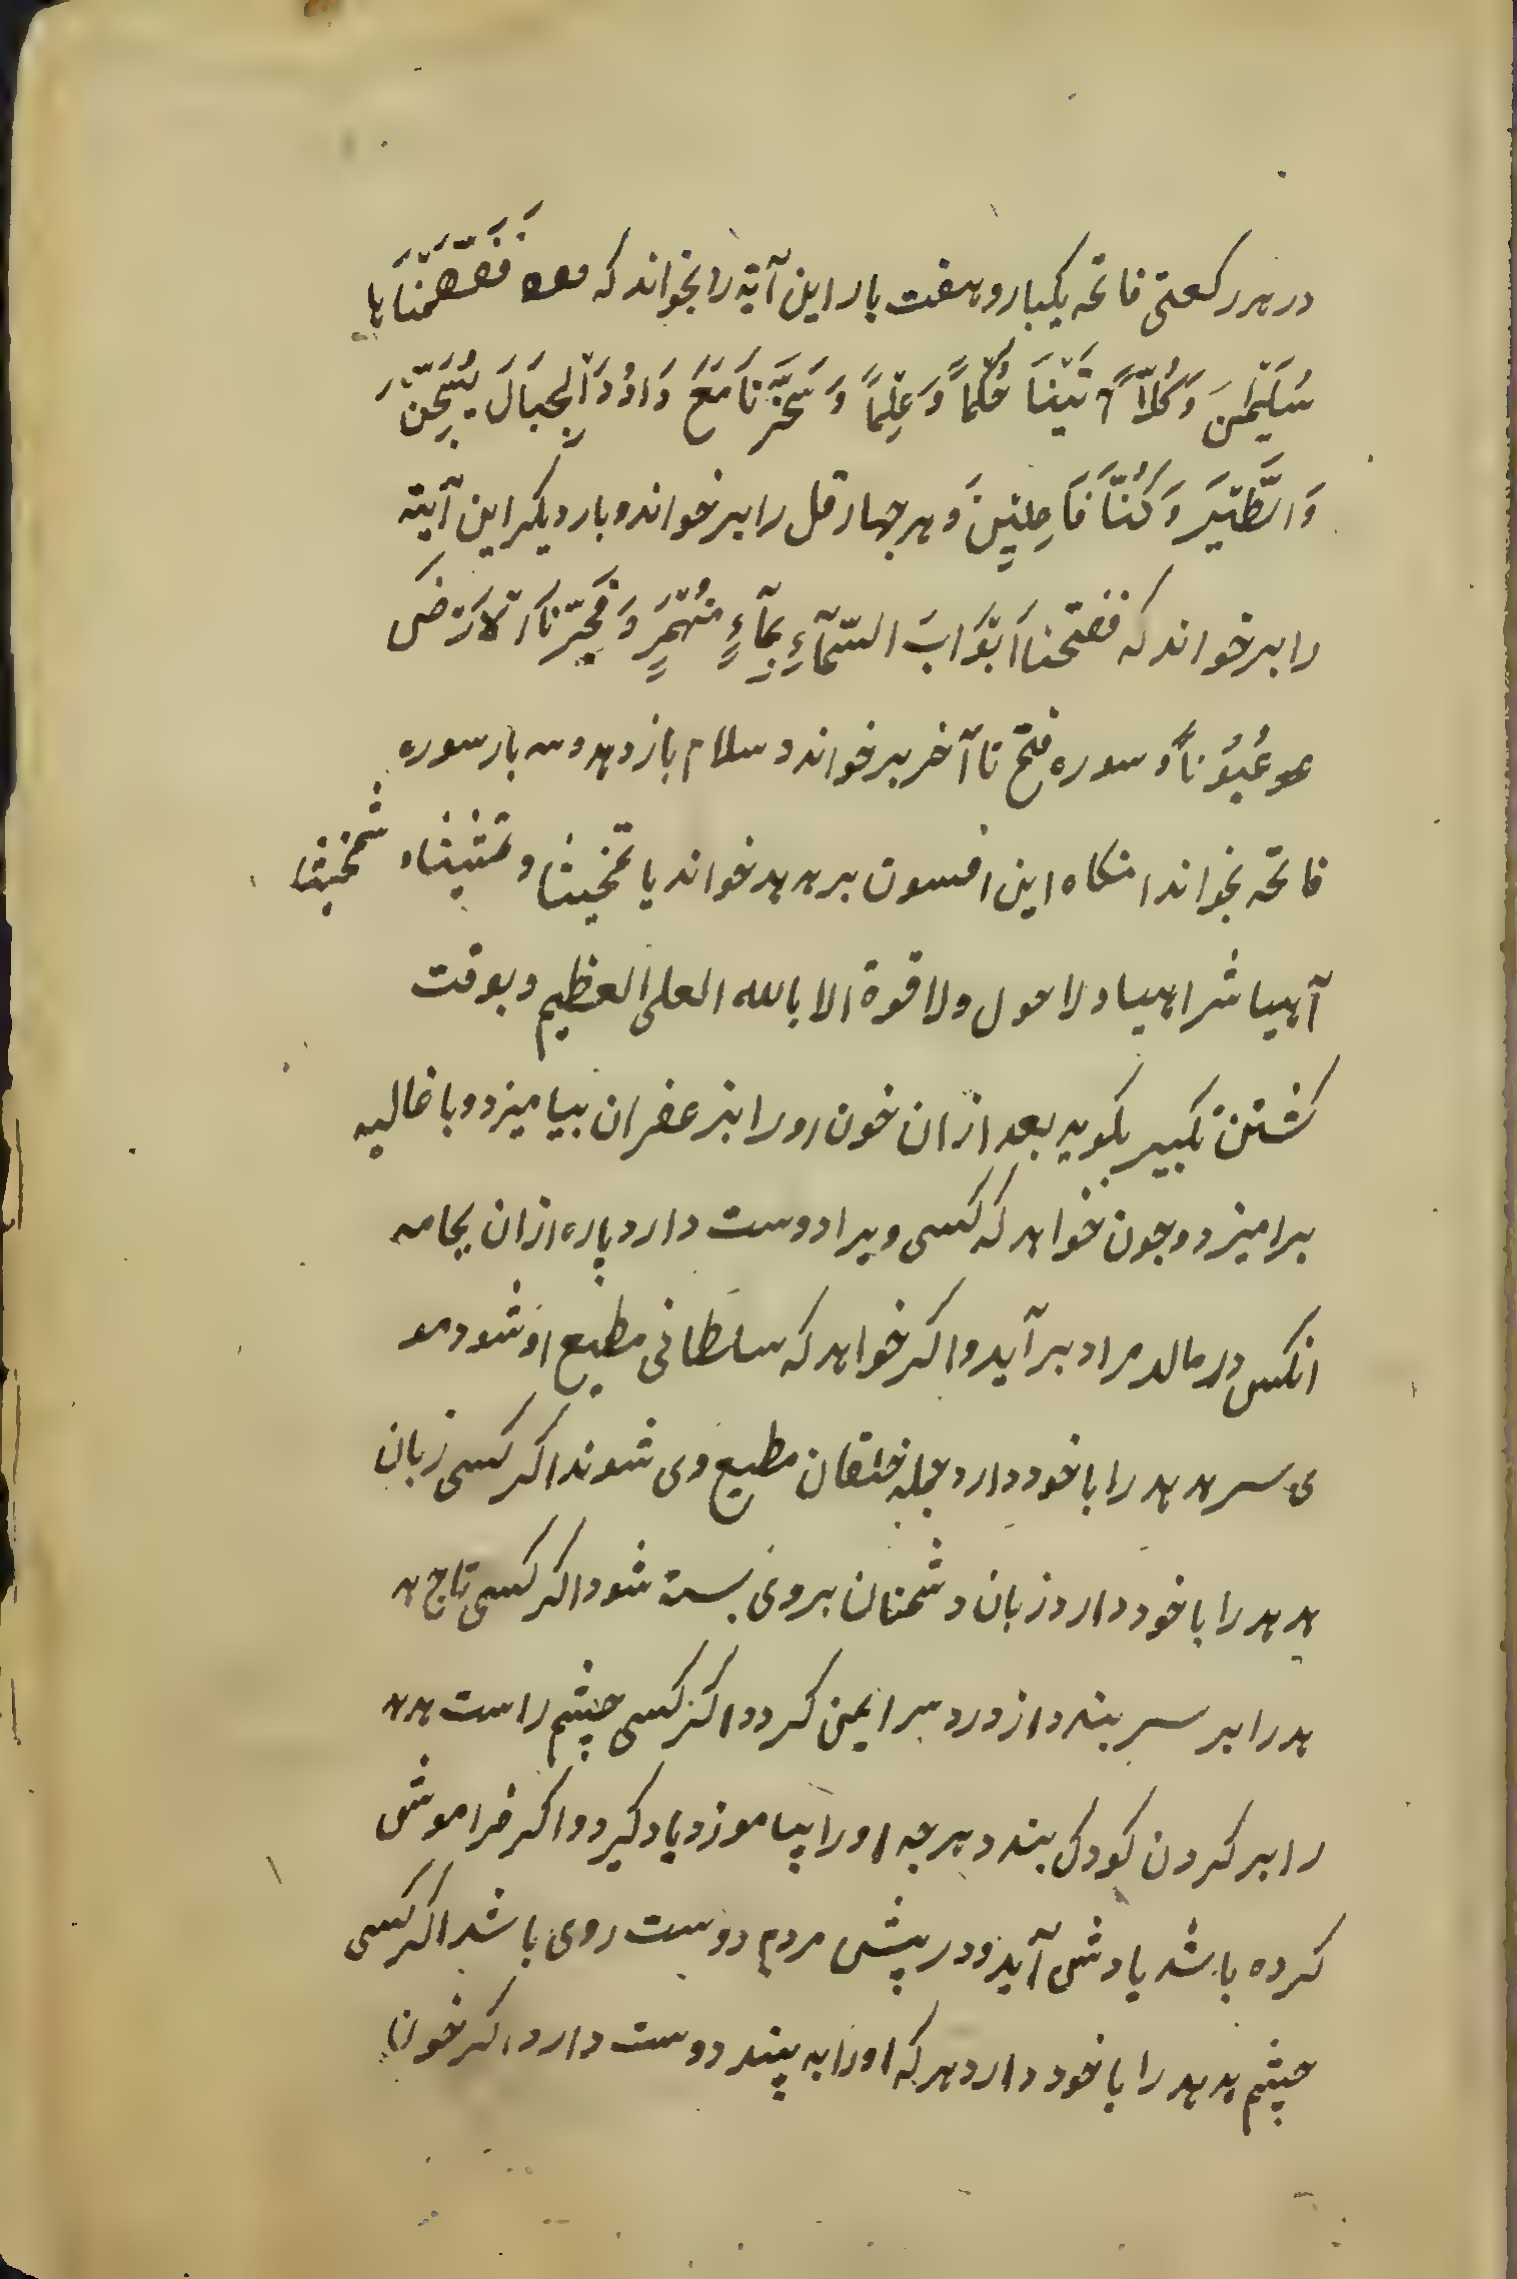 در هر رکعتی فاتحه یکبار و هفت بار این آیة را بخواند که فَفَهَّمْنَاهَا
سُلَیْمٰنَ وَکُلّاً آتَیْنَا حُکْماً وَعِلْماً وَسَخَّرْنَا مَعَ دَاوُدَ الْجِبَالَ یُسَبِّحْنَ
وَالطَّیْرَ وَکُنَّا فَاعِلِیْنَ و هر جهار قل را برخواند و بار دیکر این آیته
را برخواند که ففتحنا اَبْوَابَ السَّمَآءِ بِمَآءٍ مُنْهَمِرٍ وَفَجَّرْنَا الْاَرْضَ
عُیُوْناً و سوره فتح تا آخر برخواند و سلام باز دهد و سه بار سوره
فاتحه بخواند انکاه این افسون بر هدهد خواند یا تمخیثا و تمثیثا شمخیثا
آهیا شراهیا و لا حول ولا قوة الا بالله العلی العظیم و بوقت
کشتن تکبیر بکوید بعد ازان خون اورا بزعفران بیامیزد و با غالیه
برامیزد و جون خواهد که کسی ویرا دوست دارد پاره ازان بجامه
انکس درمالد مراد برآید و اکر خواهد که سلطانی مطیع او شود مو
ی سر هدهد را با خود دارد جمله خلقان مطیع وی شوند اکر کسی زبان
هدهد را با خود دارد زبان دشمنان بروی بسته شود اکر کسی تاج هد
هد را بر سر بندد از درد سر ایمن کردد و اکر کسی چشم راست هدهد
را بر کردن کودک بندد هرجه اورا بیاموزد یاد کیرد و اکر فراموش
کرده باشد یادش آید و در پیش مردم دوست روی باشد اکر کسی
چشم هدهد را با خود دارد هر که اورا به بیند دوست دارد اکر خون